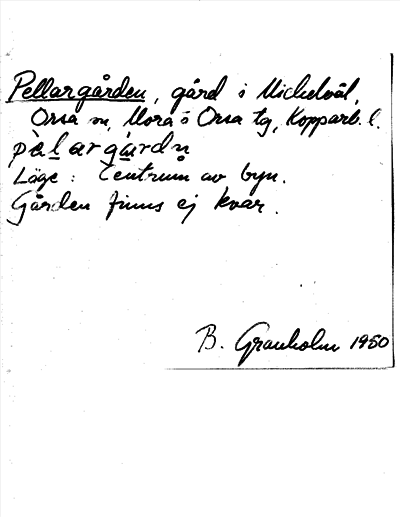 Pellargården, gård i Mickelvål,
Orsa sn, Mora o Orsa tg, Kopparb. l.
pàlargårdn
Läge: Centrum av byn.
Gården finns ej kvar.
B. Granholm 1950